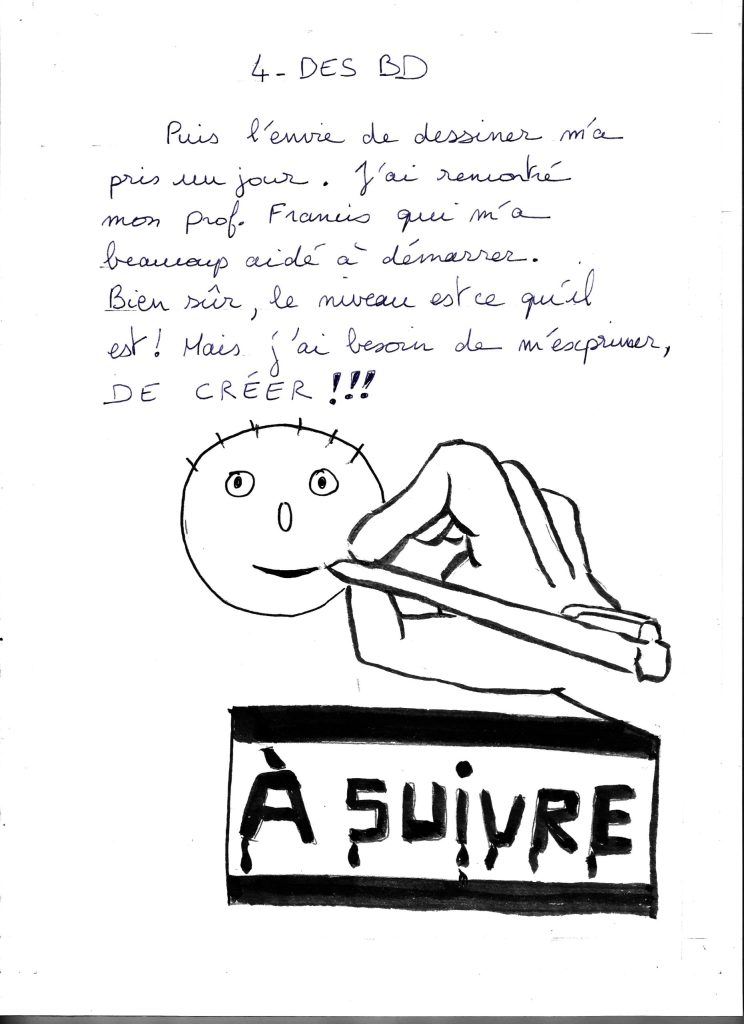 4 - DES BD
Puis l'envie de dessiner m'a
pris un jour. J'ai rencontré
mon prof. Francis qui m'a
beaucoup aidé à démarrer.
Bien sûr, le niveau est ce qu'il
est ! Mais j'ai besoin de m'exprimer,
DE CRÉER !!!
À SUiVRE